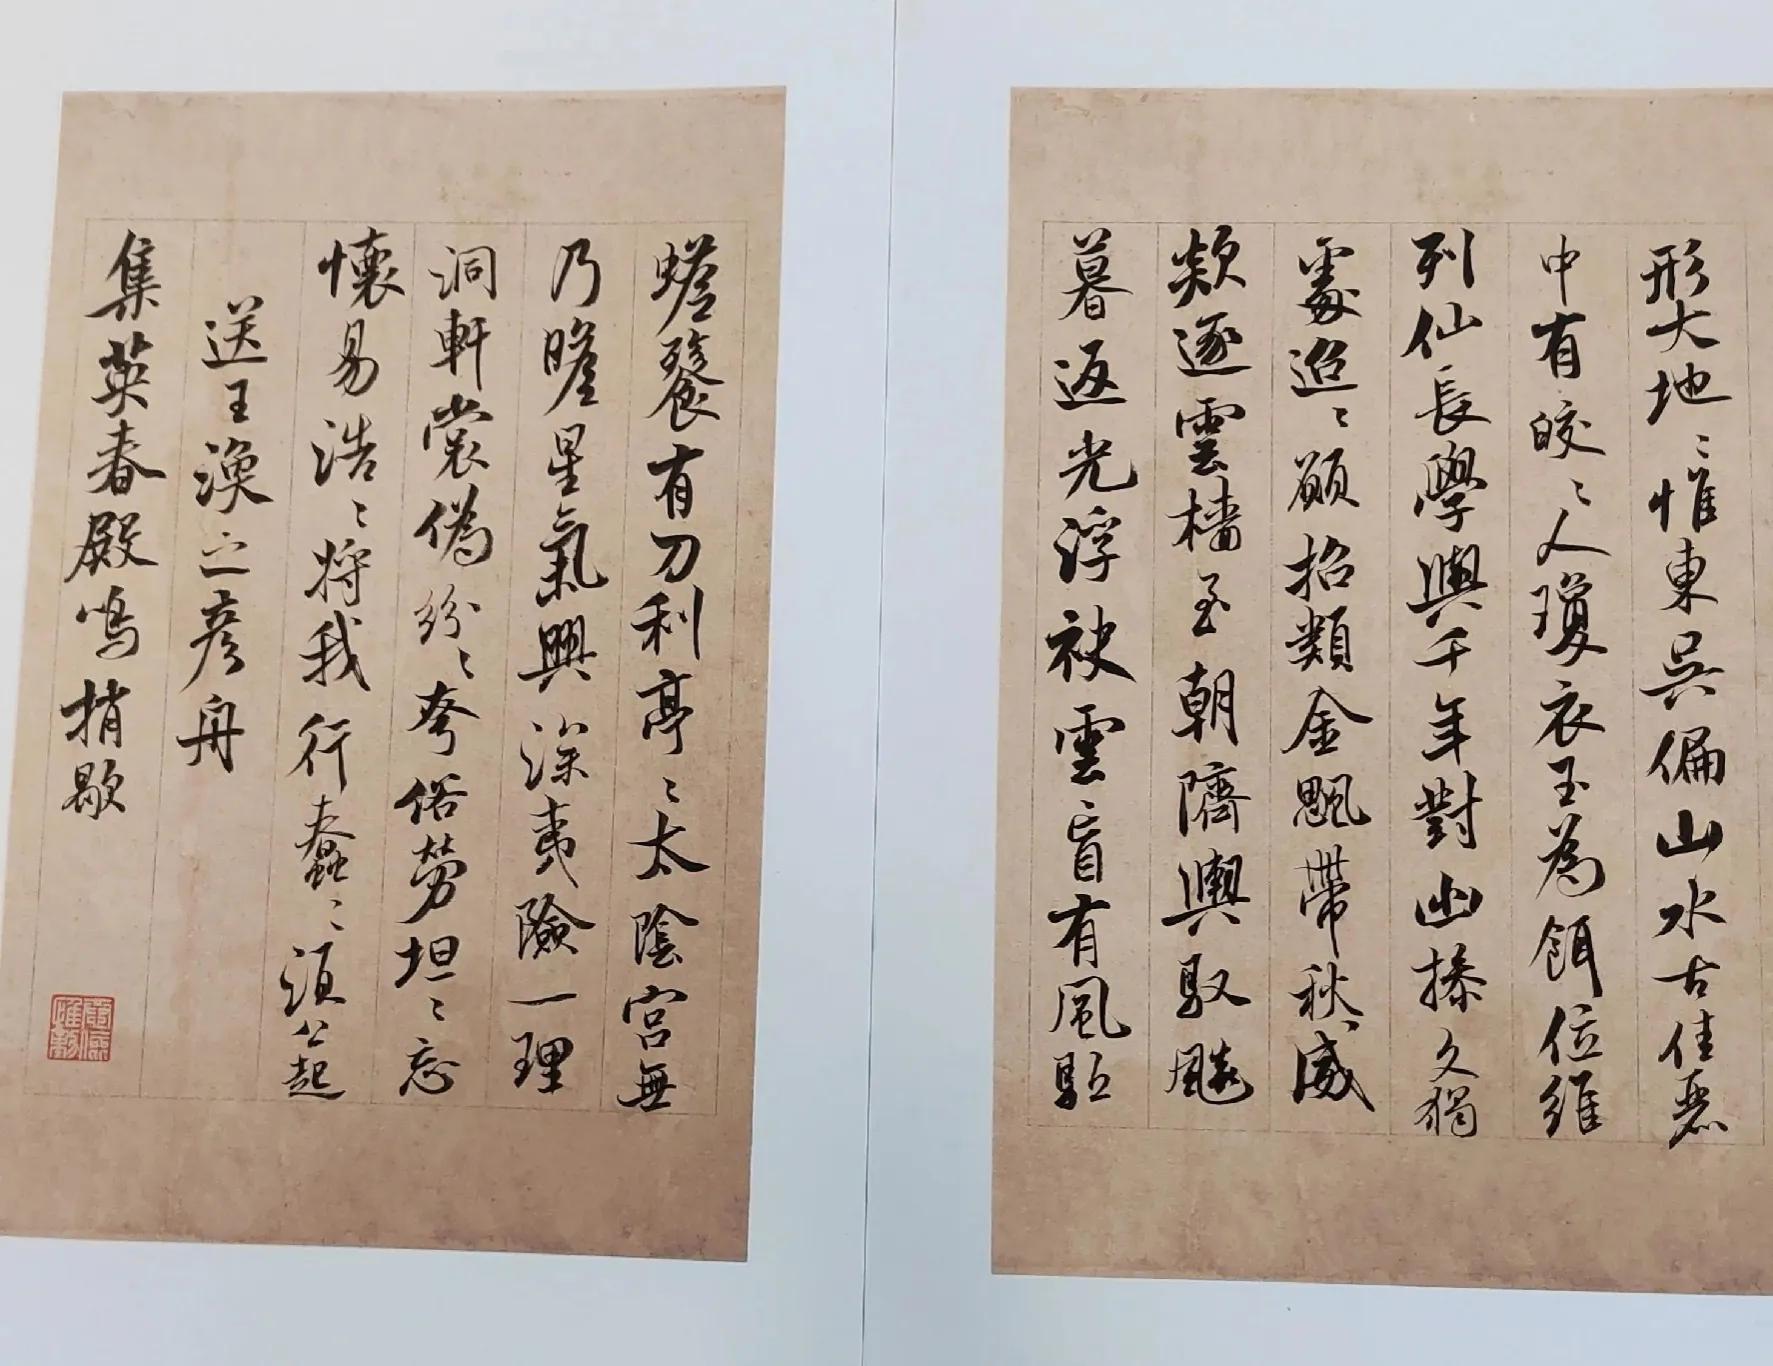 形大地〻惟東吳偏山水古佳麗
中有皎〻人瓊衣玉為餌位維
列仙長學與千年對幽操久獨
處迢〻願招類金飈帶秋威
欻逐雲檣至朝隮輿馭飈
暮返光浮袂雲盲有風驅
蟾餮有刀利亭〻太陰宮無
乃瞻星氣興深夷險一理
洞軒裳偽紛〻夸俗勞坦〻忘
懷易浩〻將我行蠢〻須公起
送王渙之彥舟
集英春殿鳴捎歇